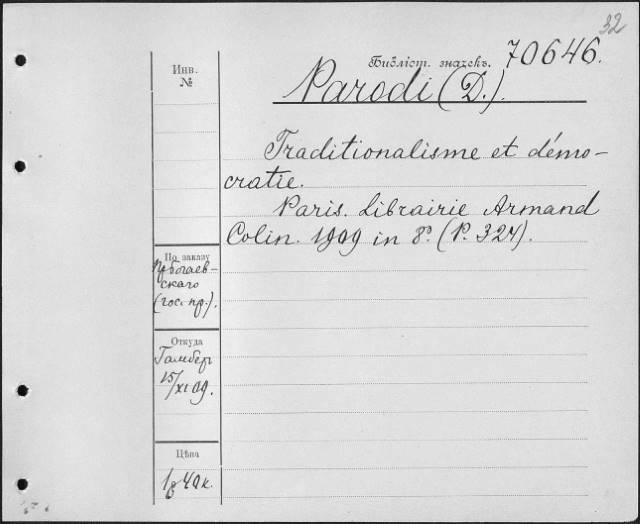 32
Библіот. значекъ. 70646.
Инв.
№
Parodi (D.).
Traditionalisme et démo-
cratie.
Paris. Librairie Armand
Colin. 1909 in 8º. (P. 324).
По заказу
скаго
(гос. пр.).
Откуда
Гамбер
15/XI 09.
Цѣна
1 р 40 к.